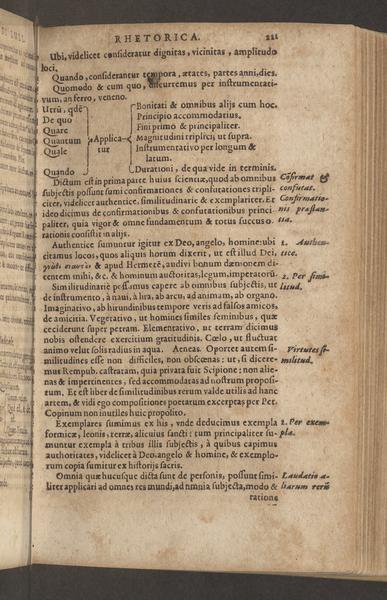 RHETORICA. 221
Ubi, videlicet consideratur dignitas, vicinitas, amplitudo
loci.
Quando, considerantur tempora, ætates, partes anni, dies.
Quomodo & cum quo, discurremus per instrumentati-
vum, an ferro, veneno.
Utrũ, qdē
De quo
Quare
Quantum
Quale
Quando
Applica-
tur
Bonitati & omnibus alijs cum hoc.
Principio accommodatius.
Fini primo & principaliter.
Magnitudini triplici; ut supra.
Instrumentativo per longum &
latum.
Durationi, de qua vide in terminis.
Dictum est in prima parte huius scientiæ, quod ab omnibus
subjectis possunt sumi confirmationes & confutationes tripli-
citer, videlicet authenticè. similitudinariè & exemplariter. Et
ideo dicimus de confirmationibus & confutationibus princi-
paliter, quia vigor & omne fundamentum & totus succus o-
rationis consistit in alijs.
Confirmat &
confutat.
Confirmatio-
nis præstan-
tia.
Authenticè sumuntur igitur ex Deo, angelo, homine: ubi
citamus locos, quos aliquis horum dixerit, ut est illud Dei,
& apud Hermetē, audivi bonum dæmonem di-
centem mihi, &c. & hominum auctoritas, legum, imperatorũ.
1. Authen-
tice.
Similitudinariè possumus capere ab omnibus subjectis, ut
de instrumento, à navi, à lira, ab arcu, ad animam, ab organo.
Imaginativo, ab hirundinibus tempore veris ad falsos amicos,
de amicitia. Vegetativo, ut homines similes seminibus, quæ
ceciderunt supre petram. Elementativo, ut terram dicimus
nobis ostendere exercitium gratitudinis. Cœlo, ut fluctuat
animo velut solis radius in aqua. Aeneas. Oportet autem si-
militudines esse non difficiles, non obscœnas: ut, si dicere-
mus Rempub. castratam, quia privata fuit Scipione: non alie-
nas & impertinentes, sed accommodatas ad nostrum proposi-
tum. Et est liber de similitudinibus rerum valde utilis ad hanc
artem, & vidi ego compositiones poetarum excerptas per Pet.
Copinum non inutiles huic propolito.
2. Per simi-
litud.
Virtutes si-
militud.
Exemplares sumimus ex his, unde deducimus exempla
formicæ, leonis, terræ, alicuius sancti: tum principaliter su-
muntur exempla à tribus illis subjectis, à quibus capimus
authoritates, videlicet à Deo, angelo & homine, & exemplo-
rum copia sumitur ex historijs sacris.
2. Per exem-
pla.
Omnia quæ hucusque dicta sunt de personis, possunt simi-
liter applicari ad omnes res mundi, ad omnia subjecta, modo &
ratione
Laudatio a-
liarum rerũ